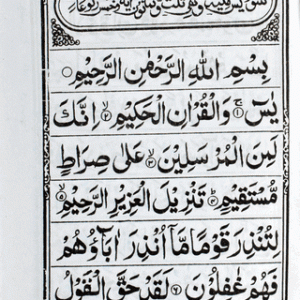 بِسْمِ اللّٰهِ الرَّحْمٰنِ الرَّحِيْمِ
يٰسٓ ۚ﴿۱﴾ وَالْقُرْاٰنِ الْحَكِيْمِ ﴿۲﴾ اِنَّكَ
لَمِنَ الْمُرْسَلِيْنَ ﴿۳﴾ عَلٰى صِرَاطٍ
مُّسْتَقِيْمٍ ﴿۴﴾ تَنْزِيْلَ الْعَزِيْزِ الرَّحِيْمِ ﴿۵﴾
لِتُنْذِرَ قَوْمًا مَّاۤ اُنْذِرَ اٰبَآؤُهُمْ
فَهُمْ غٰفِلُوْنَ ﴿۶﴾ لَقَدْ حَقَّ الْقَوْلُ